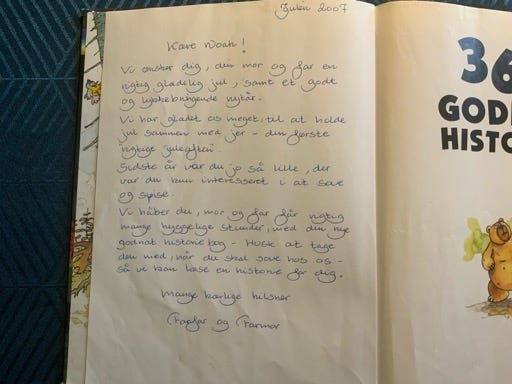 Julen 2007
Kære Noah!
Vi ønsker dig, din mor og far en
rigtig glædelig jul, samt et godt
og lykkebringende nytår.
Vi har glædet os meget til at holde
jul sammen med jer - din første
rigtige "juleaften".
Sidste år var du jo så lille, der
var du kun interesseret i at sove
og spise.
Vi håber du, mor og far får rigtig
mange hyggelige stunder, med den nye
godnat historiebog - Husk at tage
den med, når du skal sove hos os -
så vi kan læse en historie for dig.
Mange kærlige hilsner
Farfar og Farmor
36
GOD
HISTO